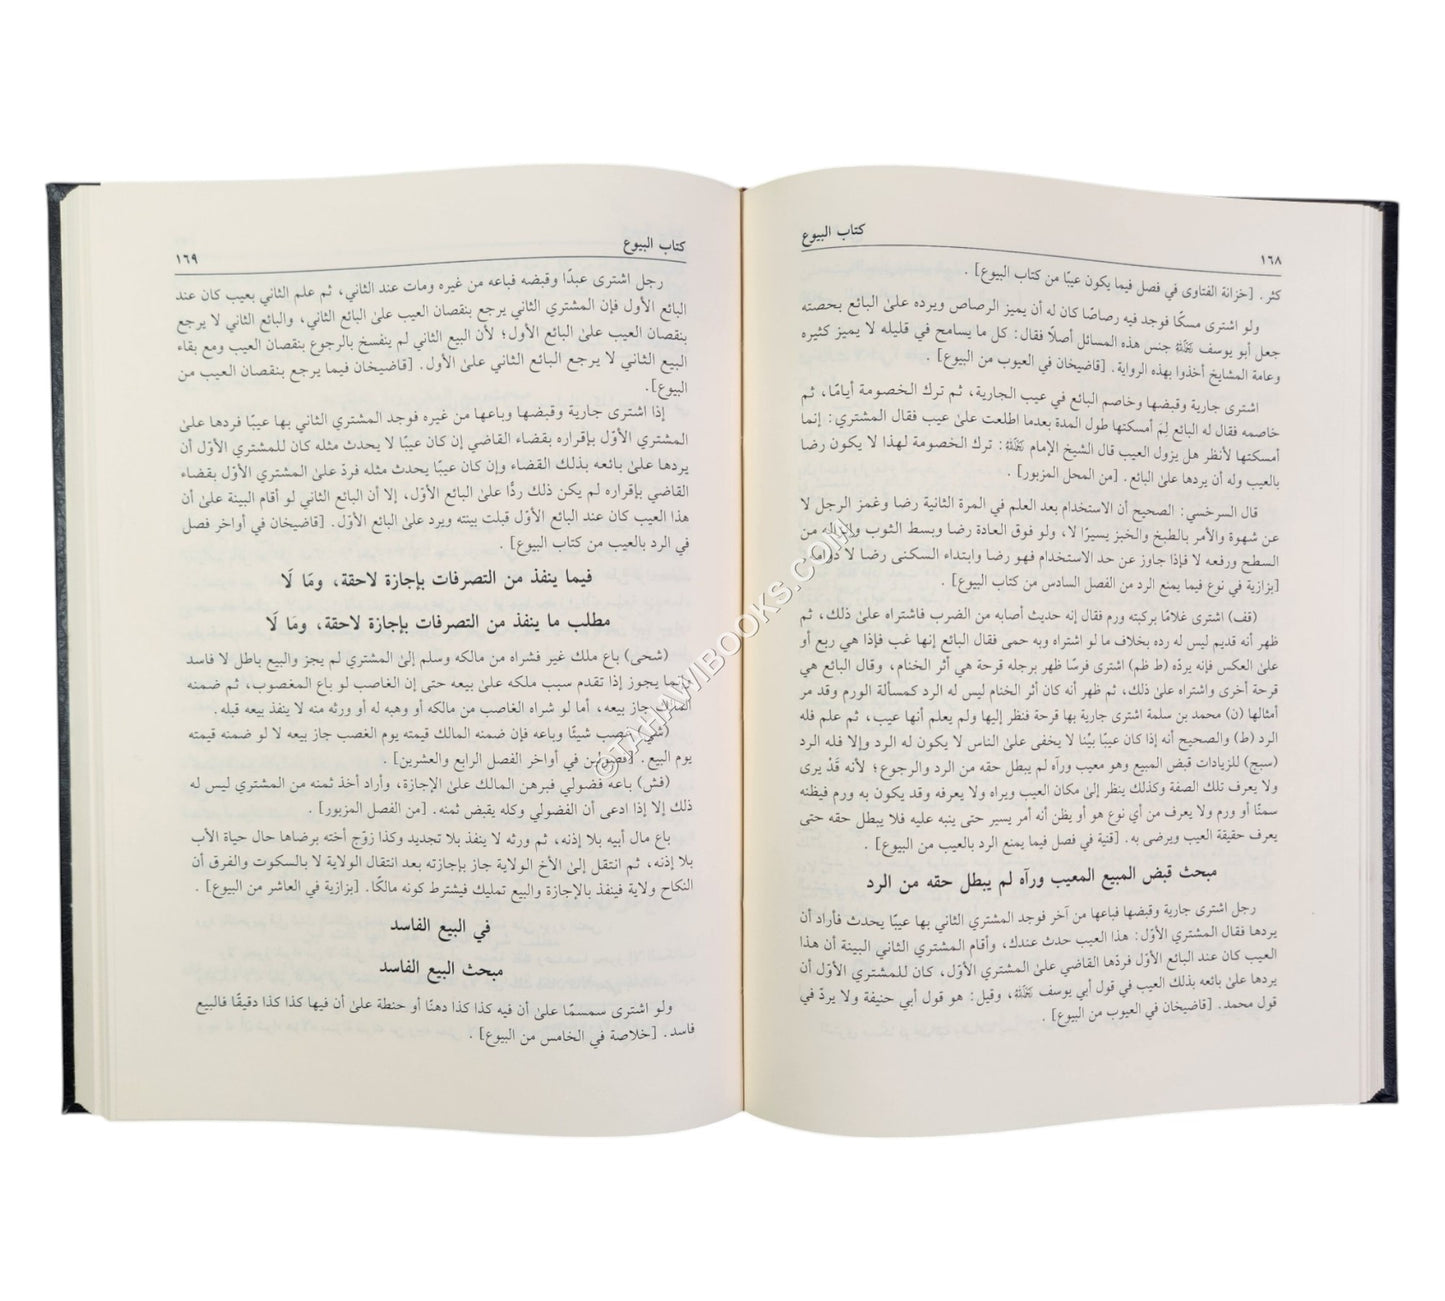 ١٦٨
كتاب البيوع
كثر. [خزانة الفتاوى في فصل فيما يكون عيبًا من كتاب البيوع].
ولو اشترى مسكًا فوجد فيه رصاصًا كان له أن يميز الرصاص ويرده على البائع بحصته
جعل أبو يوسف رحمه الله جنس هذه المسائل أصلًا فقال: كل ما يسامح في قليله لا يميز كثيره
وعامة المشايخ أخذوا بهذه الرواية. [قاضيخان في العيوب من البيوع].
اشترى جارية وقبضها وخاصم البائع في عيب الجارية، ثم ترك الخصومة أيامًا، ثم
خاصمه فقال له البائع لِمَ أمسكتها طول المدة بعدما اطلعت على عيب فقال المشتري: إنما
أمسكتها لأنظر هل يزول العيب قال الشيخ الإمام رحمه الله: ترك الخصومة لهذا لا يكون رضا
بالعيب وله أن يردها على البائع. [من المحل المزبور].
قال السرخسي: الصحيح أن الاستخدام بعد العلم في المرة الثانية رضا وغمز الرجل لا
عن شهوة والأمر بالطبخ والخبز يسيرًا لا، ولو فوق العادة رضا وبسط الثوب وإنزاله من
السطح ورفعه لا فإذا جاوز عن حد الاستخدام فهو رضا وابتداء السكنى رضا لا دوامها
[بزازية في نوع فيما يمنع الرد من الفصل السادس من كتاب البيوع].
(قف) اشترى غلامًا بركبته ورم فقال إنه حديث أصابه من الضرب فاشتراه على ذلك، ثم
ظهر أنه قديم ليس له رده بخلاف ما لو اشتراه وبه حمى فقال البائع إنها غب فإذا هي ربع أو
على العكس فإنه يردّه (ط ظم) اشترى فرسًا ظهر برجله قرحة هي أثر الخنام، وقال البائع هي
قرحة أخرى واشتراه على ذلك، ثم ظهر أنه كان أثر الخنام ليس له الرد كمسألة الورم وقد مر
أمثالها (ن) محمد بن سلمة اشترى جارية بها قرحة فنظر إليها ولم يعلم أنها عيب، ثم علم فله
الرد (ط) والصحيح أنه إذا كان عيبًا بيّنا لا يخفى على الناس لا يكون له الرد وإلا فله الرد
(سبج) للزيادات قبض المبيع وهو معيب ورآه لم يبطل حقه من الرد والرجوع؛ لأنه قَدْ يرى
ولا يعرف تلك الصفة وكذلك ينظر إلى مكان العيب ويراه ولا يعرفه وقد يكون به ورم فيظنه
سمنًا أو ورم ولا يعرف من أي نوع هو أو يظن أنه أمر يسير حتى ينبه عليه فلا يبطل حقه حتى
يعرف حقيقة العيب ويرضى به. [قنية في فصل فيما يمنع الرد بالعيب من البيوع].
مبحث قبض المبيع المعيب ورآه لم يبطل حقه من الرد
رجل اشترى جارية وقبضها فباعها من آخر فوجد المشتري الثاني بها عيبًا يحدث فأراد أن
يردها فقال المشتري الأوّل: هذا العيب حدث عندك، وأقام المشتري الثاني البينة أن هذا
العيب كان عند البائع الأول فردّها القاضي على المشتري الأوّل، كان للمشتري الأوّل أن
يردها على بائعه بذلك العيب في قول أبي يوسف رحمه الله، وقيل: هو قول أبي حنيفة ولا يردّ في
قول محمد. [قاضيخان في العيوب من البيوع].
كتاب البيوع
١٦٩
رجل اشترى عبدًا وقبضه فباعه من غيره ومات عند الثاني، ثم علم الثاني بعيب كان عند
البائع الأول فإن المشتري الثاني يرجع بنقصان العيب على البائع الثاني، والبائع الثاني لا يرجع
بنقصان العيب على البائع الأول؛ لأن البيع الثاني لم ينفسخ بالرجوع بنقصان العيب ومع بقاء
البيع الثاني لا يرجع البائع الثاني على الأول. [قاضيخان فيما يرجع بنقصان العيب من
البيوع].
إذا اشترى جارية وقبضها وباعها من غيره فوجد المشتري الثاني بها عيبًا فردها على
المشتري الأوّل بإقراره بقضاء القاضي إن كان عيبًا لا يحدث مثله كان للمشتري الأوّل أن
يردها على بائعه بذلك القضاء وإن كان عيبًا يحدث مثله فردّ على المشتري الأوّل بقضاء
القاضي بإقراره لم يكن ذلك ردًّا على البائع الأوّل، إلا أن البائع الثاني لو أقام البينة على أن
هذا العيب كان عند البائع الأوّل قبلت بينته ويرد على البائع الأوّل. [قاضيخان في أواخر فصل
في الرد بالعيب من كتاب البيوع].
فيما ينفذ من التصرفات بإجازة لاحقة، ومَا لَا
مطلب ما ينفذ من التصرفات بإجازة لاحقة، ومَا لَا
(شحى) باع ملك غير فشراه من مالكه وسلم إلى المشتري لم يجز والبيع باطل لا فاسد
وإنما يجوز إذا تقدم سبب ملكه على بيعه حتى إن الغاصب لو باع المغصوب، ثم ضمنه
المالك جاز بيعه، أما لو شراه الغاصب من مالكه أو وهبه له أو ورثه منه لا ينفذ بيعه قبله.
(شي) غصب شيئًا وباعه فإن ضمنه المالك قيمته يوم الغصب جاز بيعه لا لو ضمنه قيمته
يوم البيع. [فصولين في أواخر الفصل الرابع والعشرين].
(فش) باعه فضولي فبرهن المالك على الإجازة، وأراد أخذ ثمنه من المشتري ليس له
ذلك إلا إذا ادعى أن الفضولي وكله يقبض ثمنه. [من الفصل المزبور].
باع مال أبيه بلا إذنه، ثم ورثه لا ينفذ بلا تجديد وكذا زوّج أخته برضاها حال حياة الأب
بلا إذنه، ثم انتقل إلى الأخ الولاية جاز بإجازته بعد انتقال الولاية لا بالسكوت والفرق أن
النكاح ولاية فينفذ بالإجازة والبيع تمليك فيشترط كونه مالكًا. [بزازية في العاشر من البيوع].
في البيع الفاسد
مبحث البيع الفاسد
ولو اشترى سمسمًا على أن فيه كذا كذا دهنًا أو حنطة على أن فيها كذا كذا دقيقًا فالبيع
فاسد. [خلاصة في الخامس من البيوع].
©TAHAWIBOOKS.COM